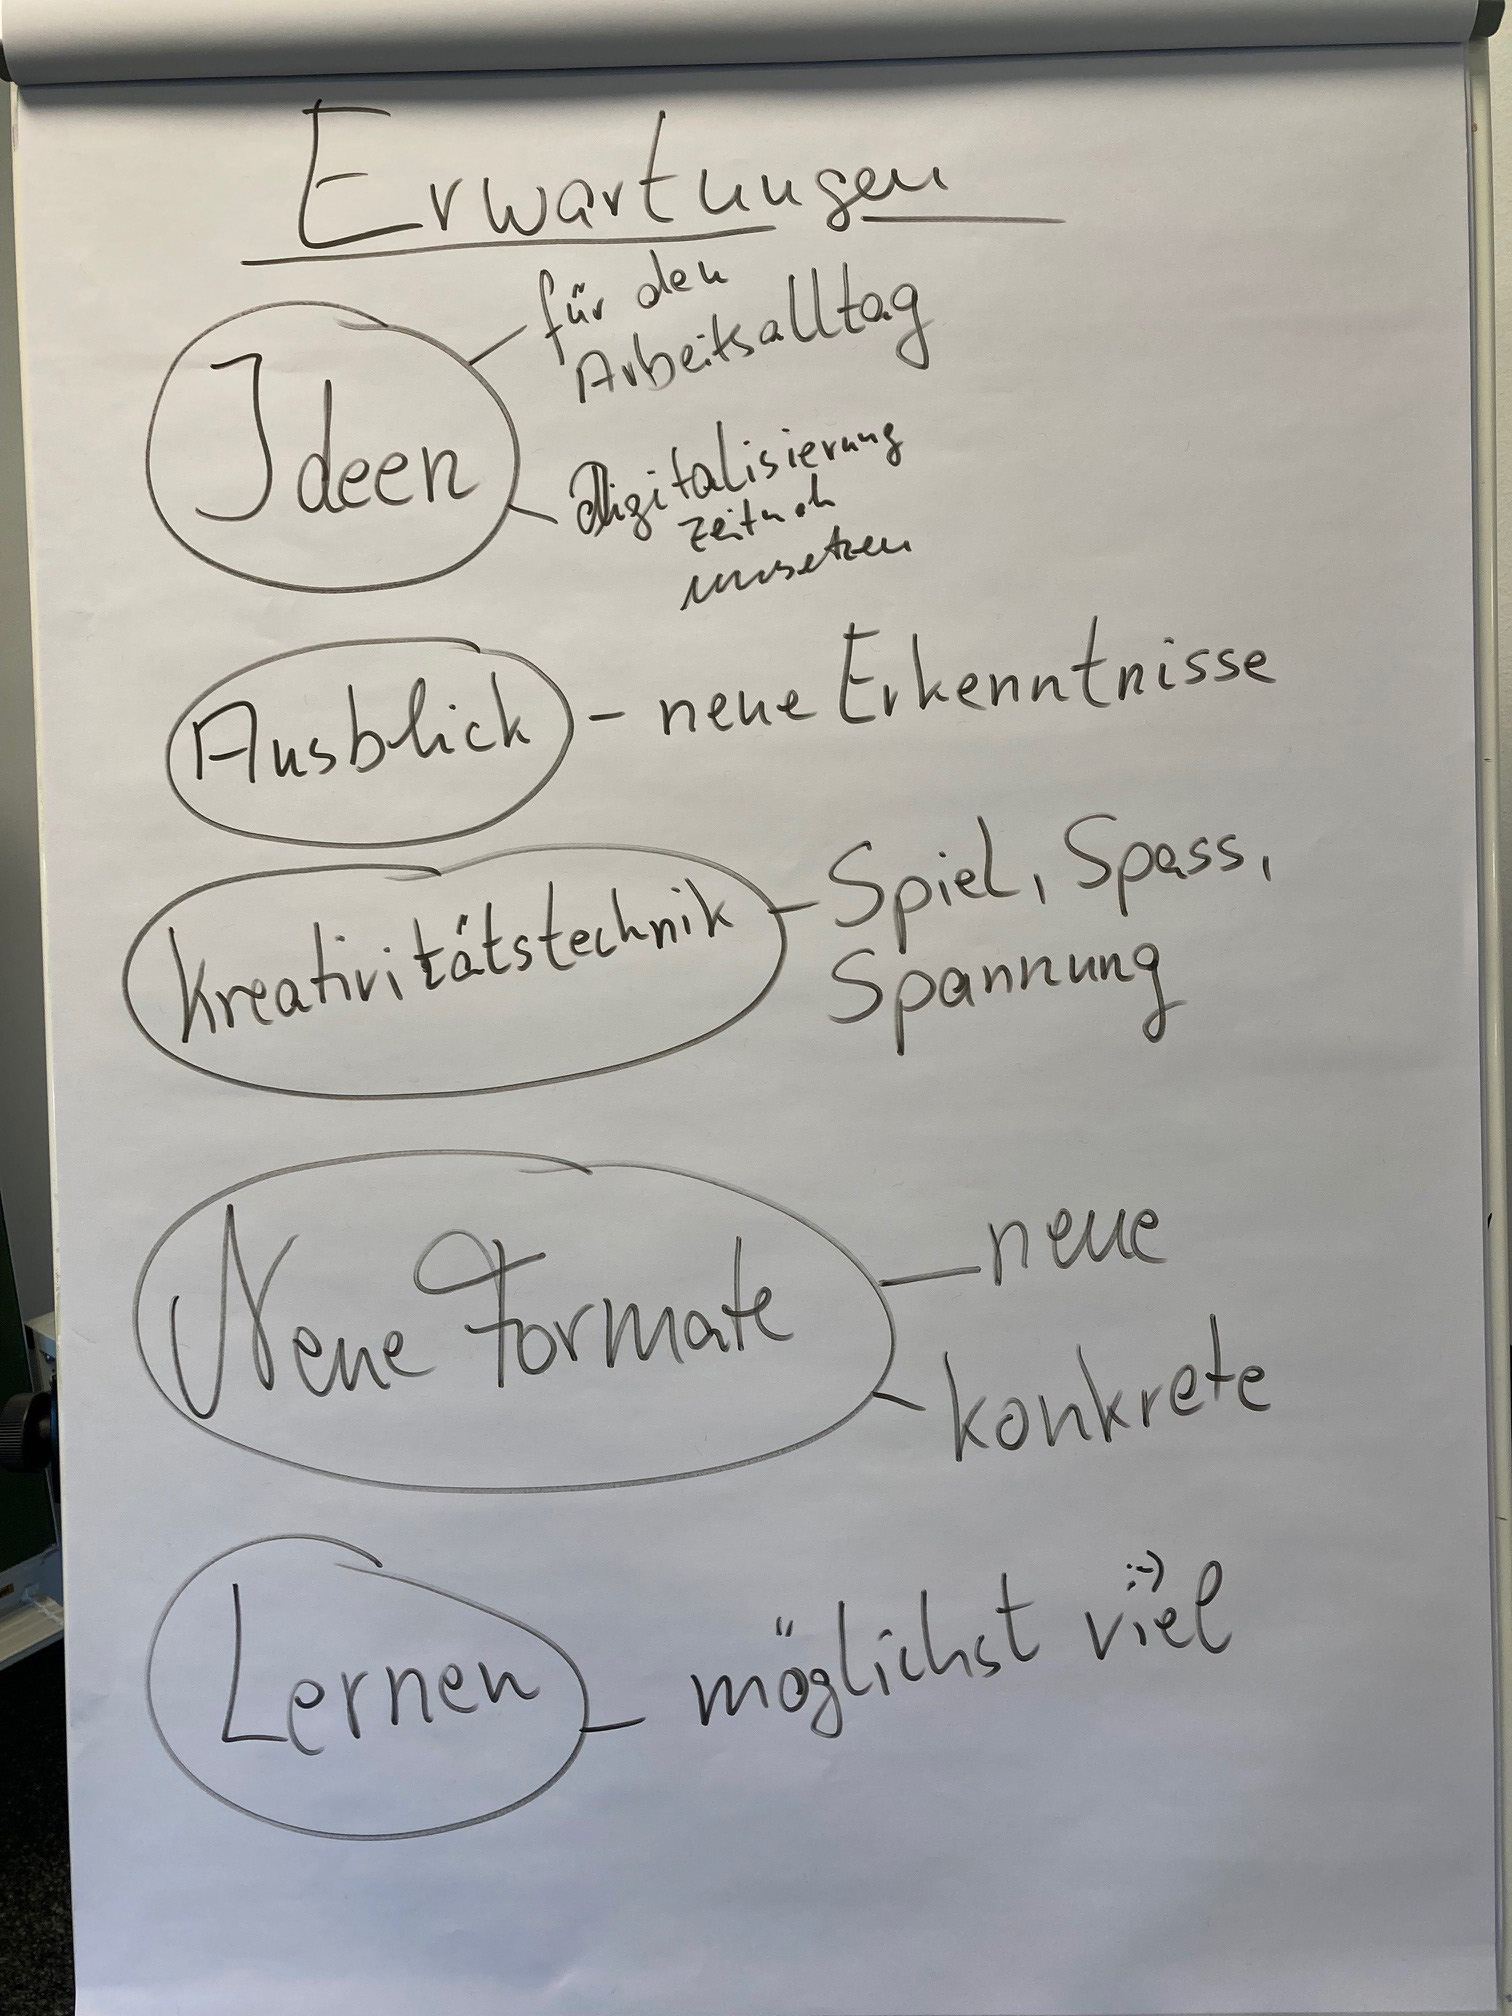 Erwartungen
Ideen
für den
Arbeitsalltag
Digitalisierung
umsetzen
Ausblick - neue Erkenntnisse
Kreativitätstechnik - Spiel, Spass,
Spannung
Neue Formate
neue
konkrete
Lernen - möglichst viel :-)